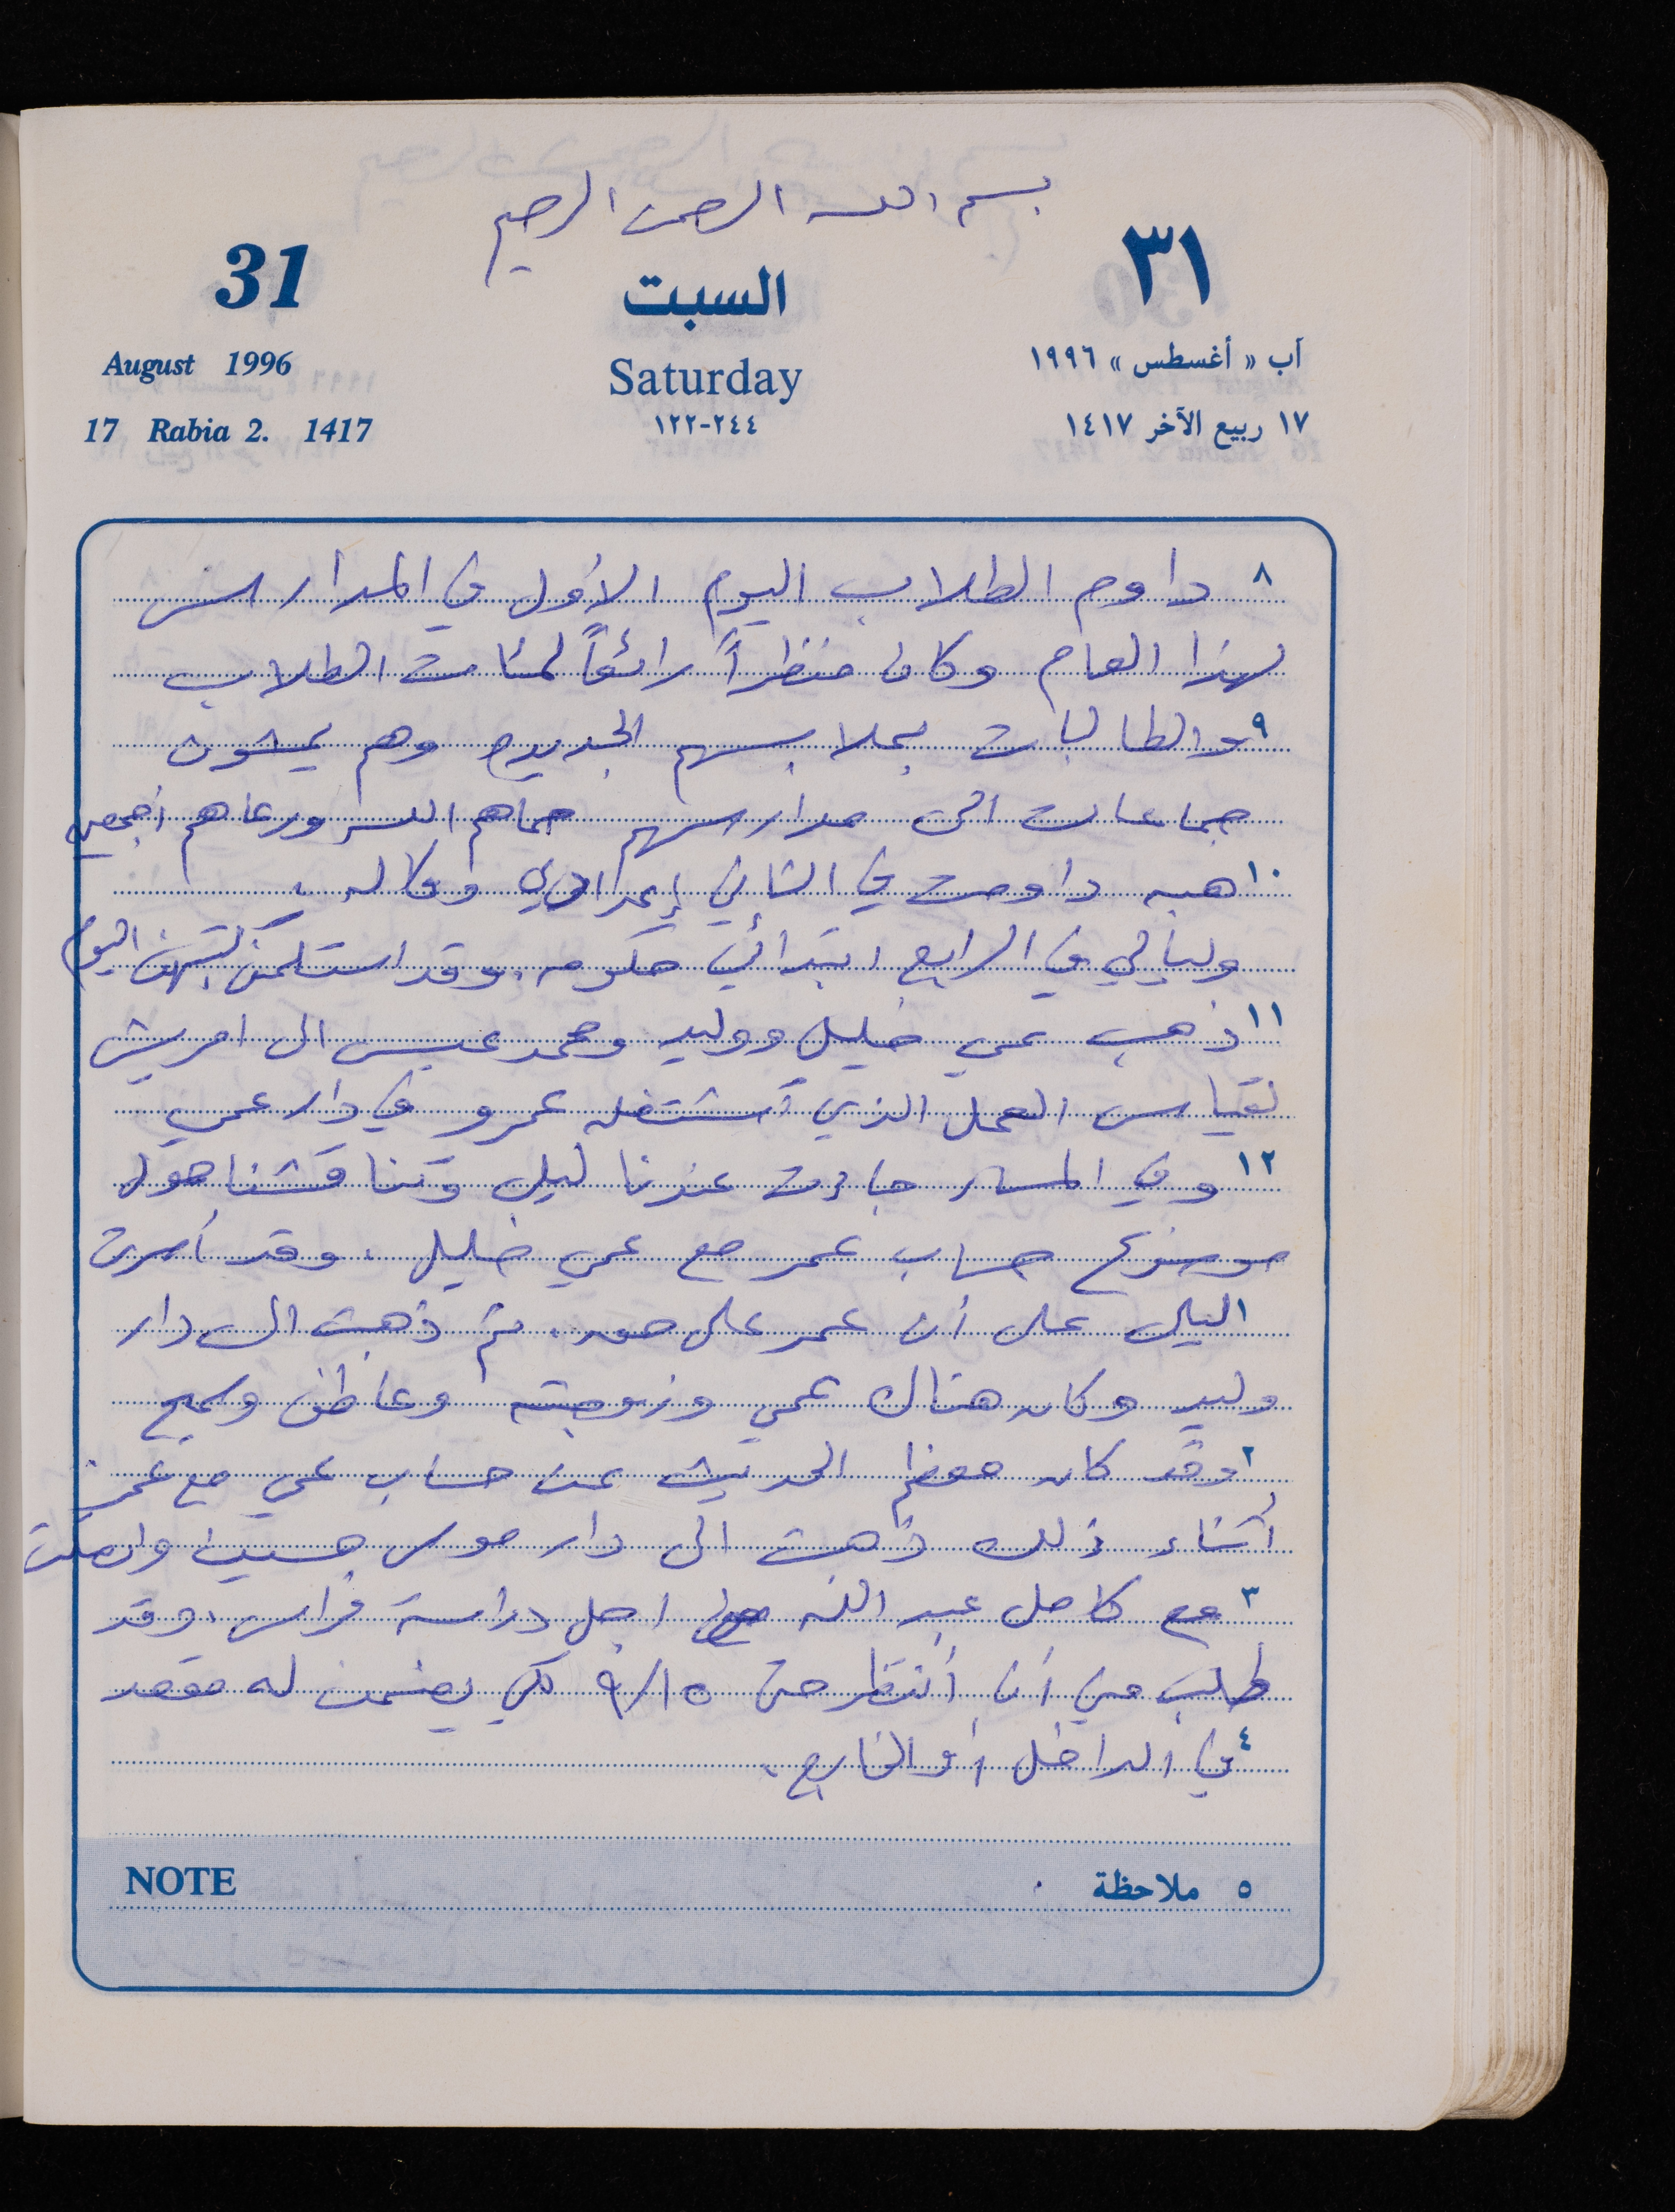 بسم الله الرحمن الرحيم
31 السبت ٣١
August 1996 Saturday آب « أغسطس » ١٩٩٦
17 Rabia 2. 1417 ٢٤٤-١٢٢ ١٧ ربيع الآخر ١٤١٧
٨ داوم الطلاب اليوم الأول في المدارس
لهذا العام وكان منظراً رائعاً لمئات الطلاب
٩ والطالبات بملابسهم الجديده وهم يمشون
جماعات الى مدارسهم حماهم الله ورعاهم أجمعين
١٠ هبه داومت في الثاني إعدادي وكاله .
وليالي في الرابع ابتدائي حكومه . وقد استلمن كتبهن اليوم
١١ ذهب عمي خليل ووليد ومحمد عيسى الى امريش
لقياس العمل الذي اشتغله عمرو في دار عمي
١٢ وفي المساء جاءت عندنا ليلى وتناقشنا حول
موضوع حساب عمر مع عمي خليل . وقد أصرت
١ ليلى على أن عمر على حق . ثم ذهبت الى دار
وليد وكان هناك عمي وزوجته وعاطف وسميح
٢ وقد كان معظم الحديث عن حساب عمي مع عمر .
أثناء ذلك ذهبت الى دار موسى حسين واتصلت
٣ مع كامل عبد الله من اجل دراسة فراس . وقد
طلب مني أن أنتظر حتى ٩/١٥ لكي يضمن له مقعد
٤ في الداخل أو الخارج .
NOTE ٥ ملاحظة